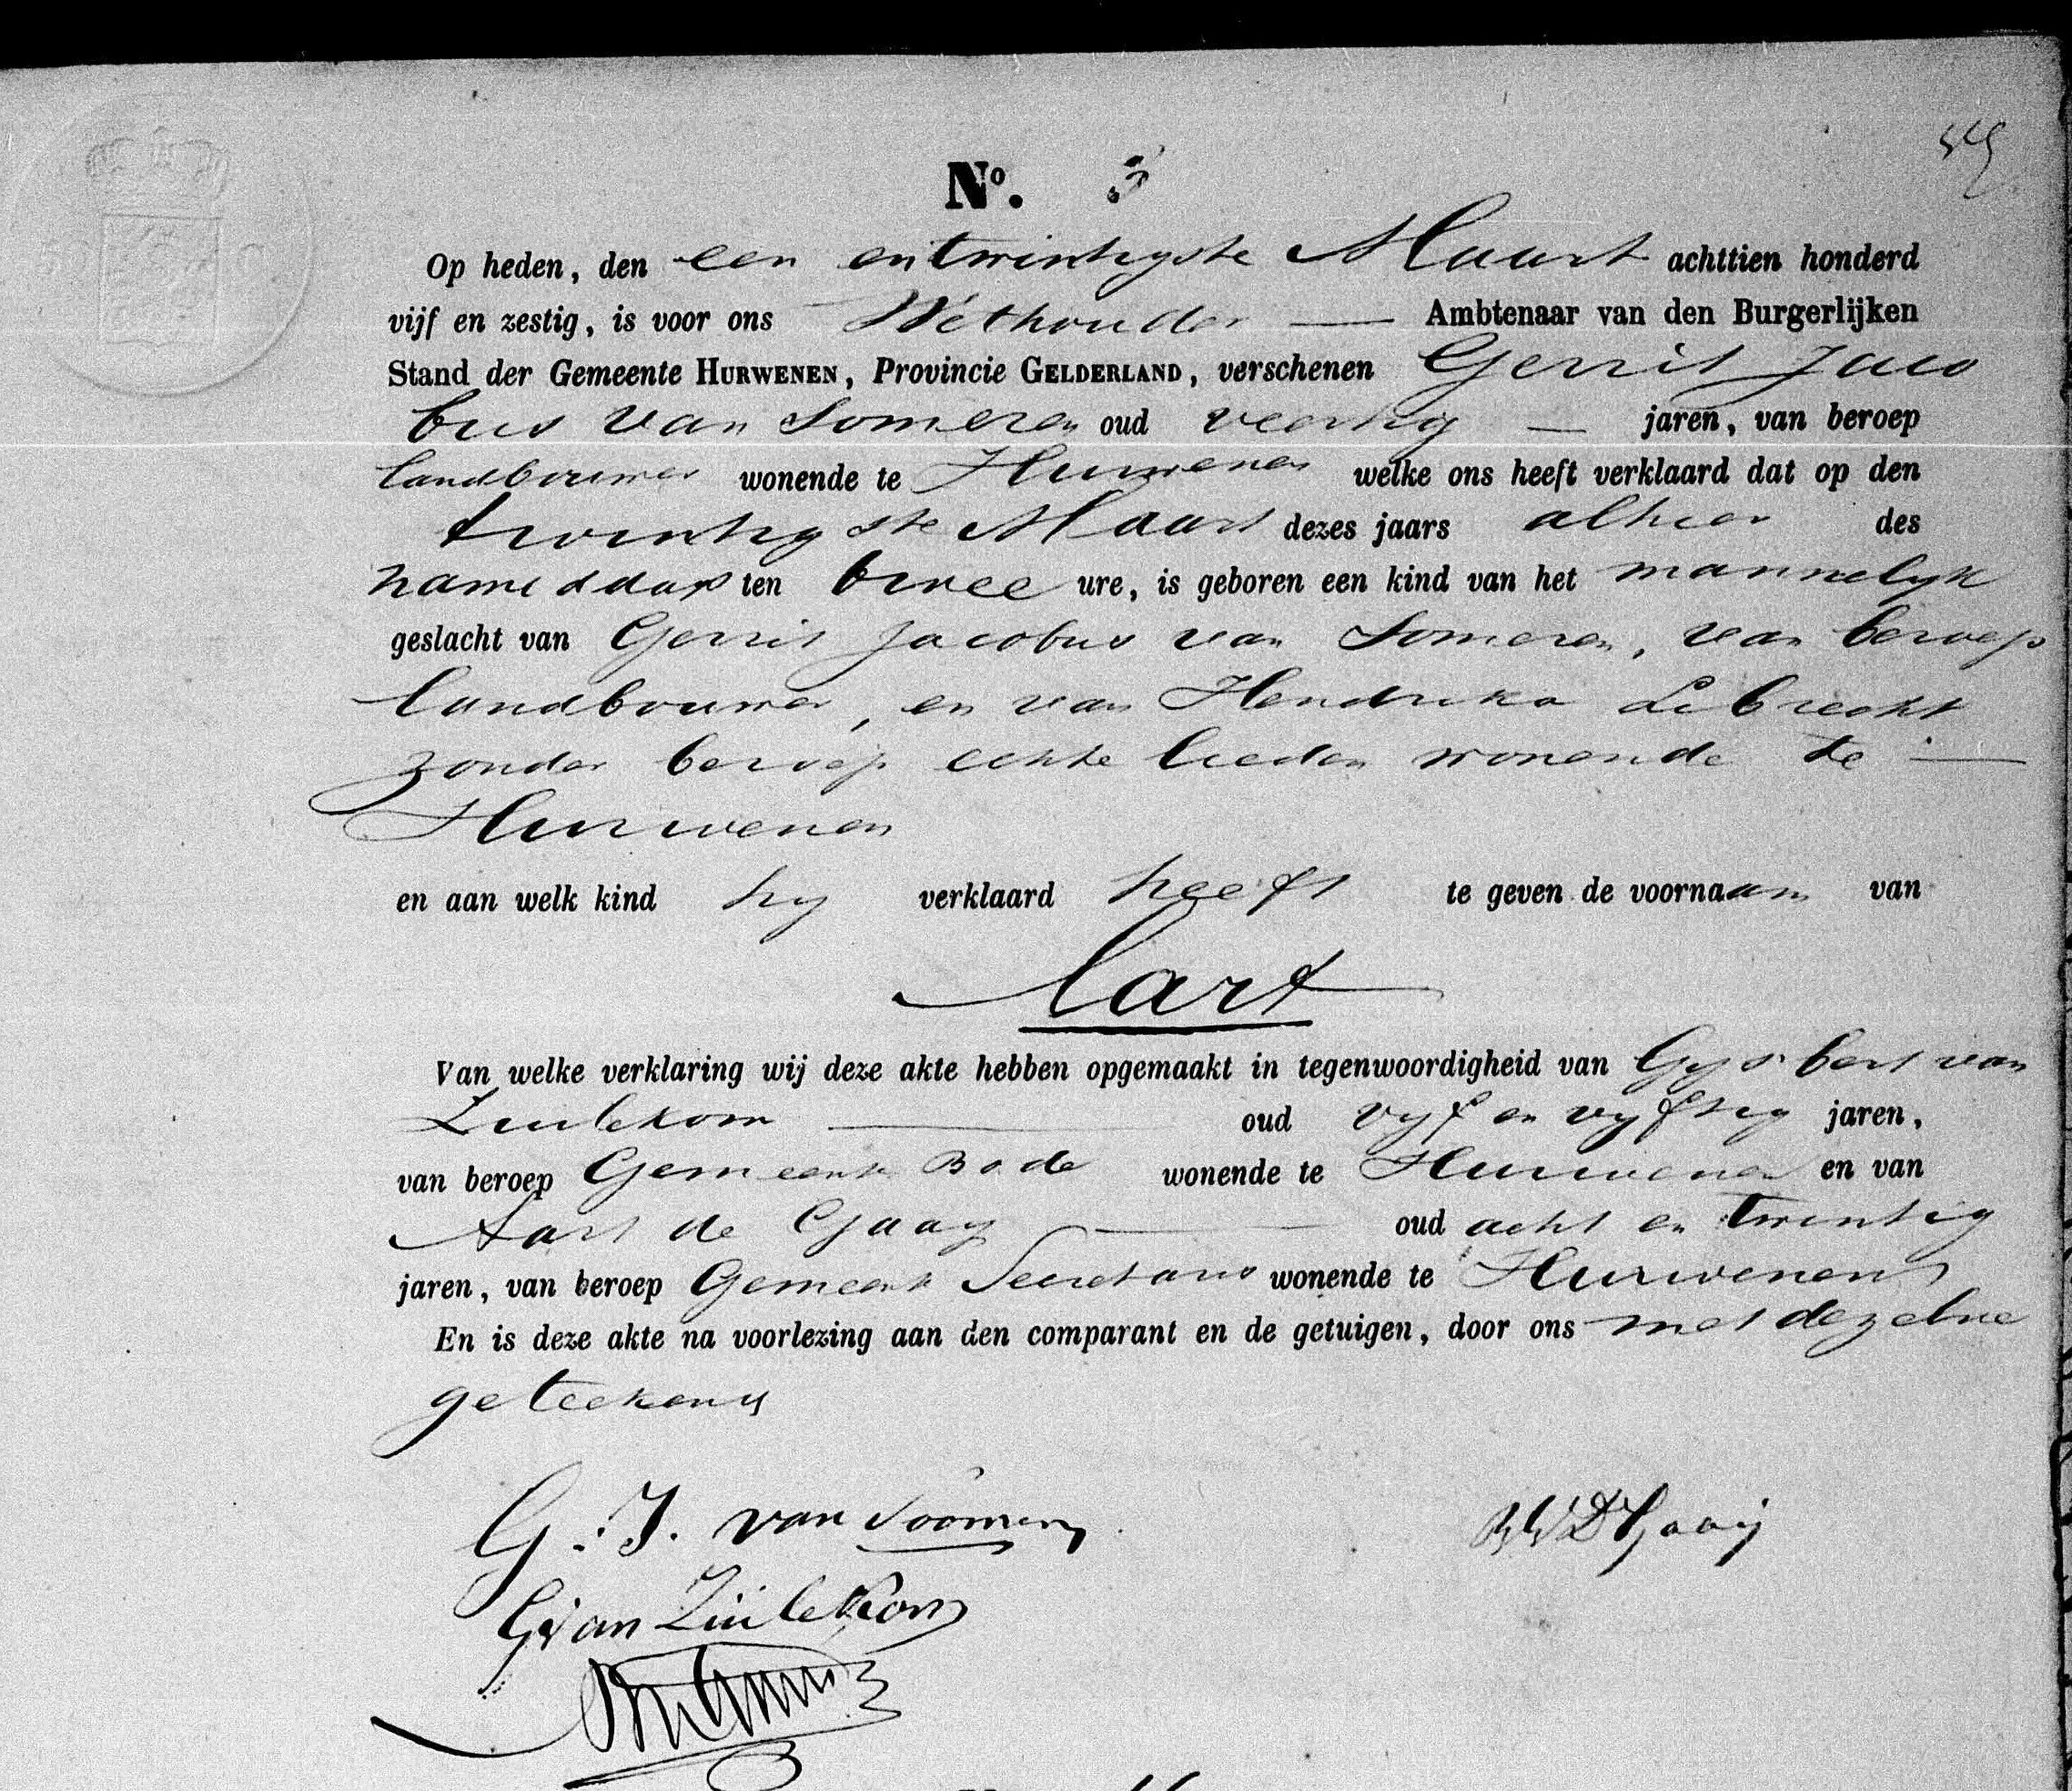 No. 5
Op heden, den een entwintigste Maart achttien honderd
vijf en zestig, is voor ons Wethouder — Ambtenaar van den Burgerlijken
Stand der Gemeente HURWENEN, Provincie GELDERLAND, verschenen Gerrit Jaco
bus van Someren oud veertig — jaren, van beroep
landbouwer wonende te Hurwenen welke ons heeft verklaard dat op den
twintigste Maart dezes jaars alhier des
namiddags ten twee ure, is geboren een kind van het mannelyk
geslacht van Gerrit Jacobus van Someren, van beroep
landbouwer, en van Hendrika Lebrecht
zonder beroep echte lieden wonende te —
Hurwenen
en aan welk kind hy verklaard heeft te geven de voornaam van
Aart
Van welke verklaring wij deze akte hebben opgemaakt in tegenwoordigheid van Gysbert van
Zuilekom — oud vyf en vyftig jaren,
van beroep Gemeente Bode wonende te Hurwenen en van
Aart de Gaay — oud acht en twintig
jaren, van beroep Gemeente Secretaris wonende te Hurwenen
En is deze akte na voorlezing aan den comparant en de getuigen, door ons met dezelve
geteekend
G. J. van Soomeren
G van Zuilekom